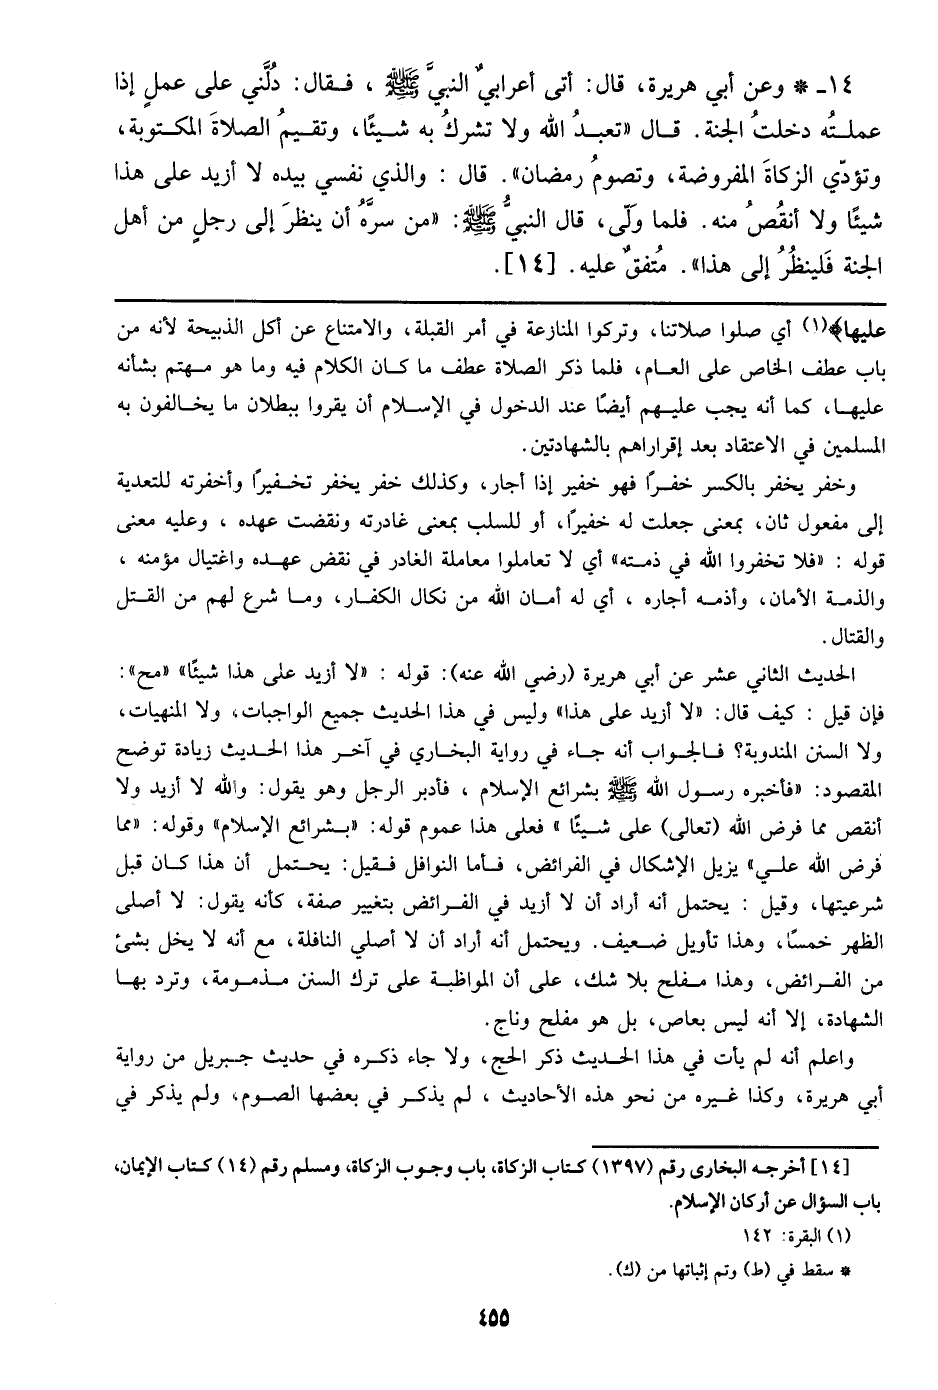 ١٤ـ * وعن أبي هريرة، قال: أتى أعرابيٌ النبيَّ ﷺ ، فـقال: دُلَّني على عملٍ إذا
عملـتُه دخلتُ الجنة. قـال «تعبـدُ الله ولا تشركُ به شـيئًا، وتقـيمُ الصلاةَ المكـتوبة،
وتؤدّي الزكاةَ المفروضة، وتصومُ رمضان». قال : والذي نفسي بيده لا أزيد على هذا
شيئًا ولا أنقُصُ منه. فلما ولّى، قال النبيُّ ﷺ: «من سرَّهُ أن ينظرَ إلى رجلٍ من أهل
الجنة فَلينظُرُ إلى هذا». مُتفقٌ عليه. [١٤].
عليها﴾(١) أي صلوا صلاتنا، وتركوا المنازعة في أمر القبلة، والامتناع عن أكل الذبيحة لأنه من
باب عطف الخاص على العـام، فلما ذكر الصلاة عطف ما كـان الكلام فيه وما هو مـهتم بشأنه
عليهـا، كما أنه يجب عليـهم أيضًا عند الدخول في الإسـلام أن يقروا ببطلان ما يخـالفون به
المسلمين في الاعتقاد بعد إقرارهم بالشهادتين.
وخفر يخفر بالكسر خفـرًا فهو خفير إذا أجار، وكذلك خفر يخفر تخـفيرًا وأخفرته للتعدية
إلى مفعول ثان، بمعنى جعلت له خفيرًا، أو للسلب بمعنى غادرته ونقضت عهده ، وعليه معنى
قوله : «فلا تخفروا الله في ذمـته» أي لا تعاملوا معاملة الغادر في نقض عهـده واغتيال مؤمنه ،
والذمـة الأمان، وأذمـه أجاره ، أي له أمـان الله من نكال الكفـار، ومـا شرع لهم من القـتل
والقتال.
الحديث الثاني عشر عن أبي هريرة (رضي الله عنه): قوله : «لا أزيد على هذا شيئًا» «مح»:
فإن قيل : كيف قال: «لا أزيد على هذا» وليس في هذا الحديث جميع الواجبات، ولا المنهيات،
ولا السنن المندوبة؟ فـالجـواب أنه جـاء في رواية البخـاري في آخـر هذا الحـديث زيادة توضح
المقصود: «فأخبره رسـول الله ﷺ بشرائع الإسلام ، فأدبر الرجل وهو يقول: والله لا أزيد ولا
أنقص مما فرض الله (تعالى) على شـيئًا » فعلى هذا عموم قوله: «بـشرائع الإسلام» وقوله: «مما
فرض الله علـي» يزيل الإشكال في الفرائض، فـأما النوافل فـقيل: يحـتمل أن هذا كـان قبل
شرعيتها، وقيل : يحتمل أنه أراد أن لا أزيد في الفـرائض بتغيير صفة، كأنه يقول: لا أصلى
الظهر خمسًا، وهذا تأويل ضـعيف. ويحتمل أنه أراد أن لا أصلي النافلة، مع أنه لا يخل بشئ
من الفـرائض، وهذا مـفلح بلا شك، على أن المواظبـة على ترك السنن مـذمـومة، وترد بهـا
الشهادة، إلا أنه ليس بعاص، بل هو مفلح وناج.
واعلم أنه لم يأت في هذا الحـديث ذكر الحج، ولا جاء ذكـره في حديث جـبريل من رواية
أبي هريرة، وكذا غـيره من نحو هذه الأحاديث ، لم يذكـر في بعضها الصـوم، ولم يذكر في
[١٤] أخرجـه البخارى رقـم (١٣٩٧) كـتاب الزكاة، باب وجـوب الزكاة، ومسلم رقم (١٤) كـتاب الإيمان،
باب السؤال عن أركان الإسلام.
(١) البقرة: ١٤٢
* سقط في (ط) وتم إثباتها من (ك).
٤٥٥